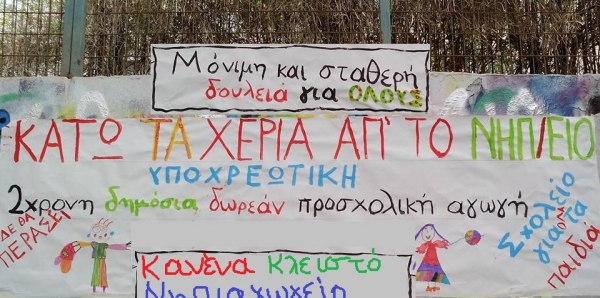 Μόνιμη και σταθερή
δουλειά για ΟΛΟΥΣ
ΚΑΤΩ ΤΑ ΧΕΡΙΑ ΑΠ' ΤΟ ΝΗΠ/ΕΙΟ
ΥΠΟΧΡΕΩΤΙΚΗ
2χρονη δημόσια δωρεάν προσχολική αγωγή
ΔΕ ΘΑ
ΠΕΡΑΣΕΙ
Σχολείο
για
τα
παιδιά
Κανένα Κλειστό
Νηπιαγωγείο